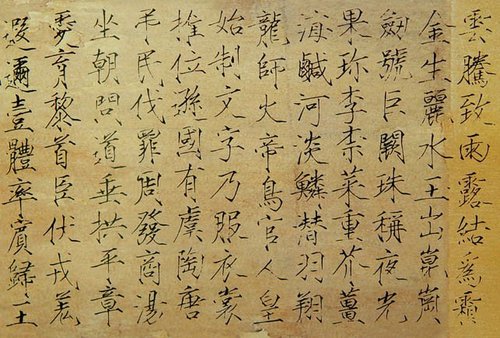 雲騰致雨露結爲霜
金生麗水玉出崑崗
劍號巨闕珠稱夜光
果珍李柰菜重芥薑
海鹹河淡鱗潛羽翔
龍師火帝鳥官人皇
始制文字乃服衣裳
推位遜國有虞陶唐
弔民伐罪周發商湯
坐朝問道垂拱平章
愛育黎首臣伏戎羌
遐邇壹體率賓歸王